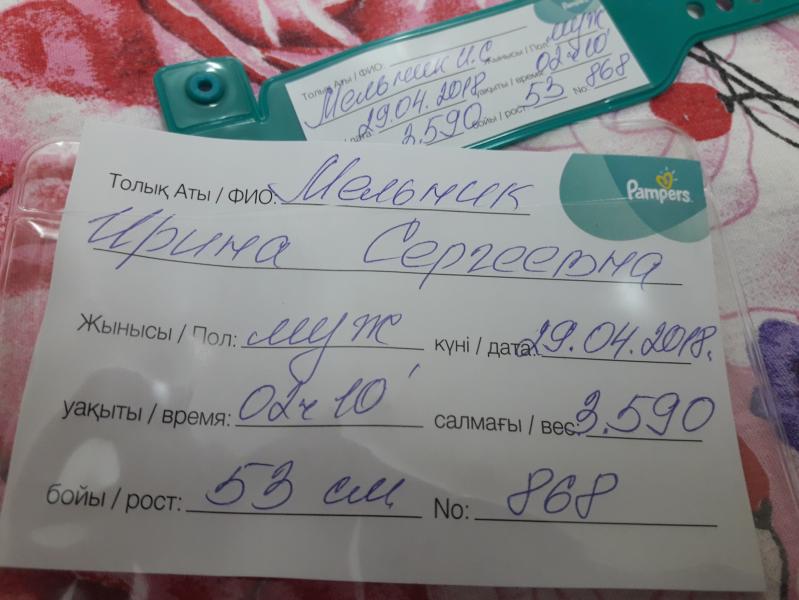 Толық Аты / ФИО:
Мельник И.С
Жынысы / Пол: муж
29.04.2018
уақыты / время: 02ч10'
3.590
бойы / рост: 53
No: 868
Толық Аты / ФИО: Мельник
Pampers
Ирина Сергеевна
Жынысы / Пол: муж күні / дата: 29.04.2018.
уақыты / время: 02ч10' салмағы / вес: 3.590
бойы / рост: 53 см No: 868